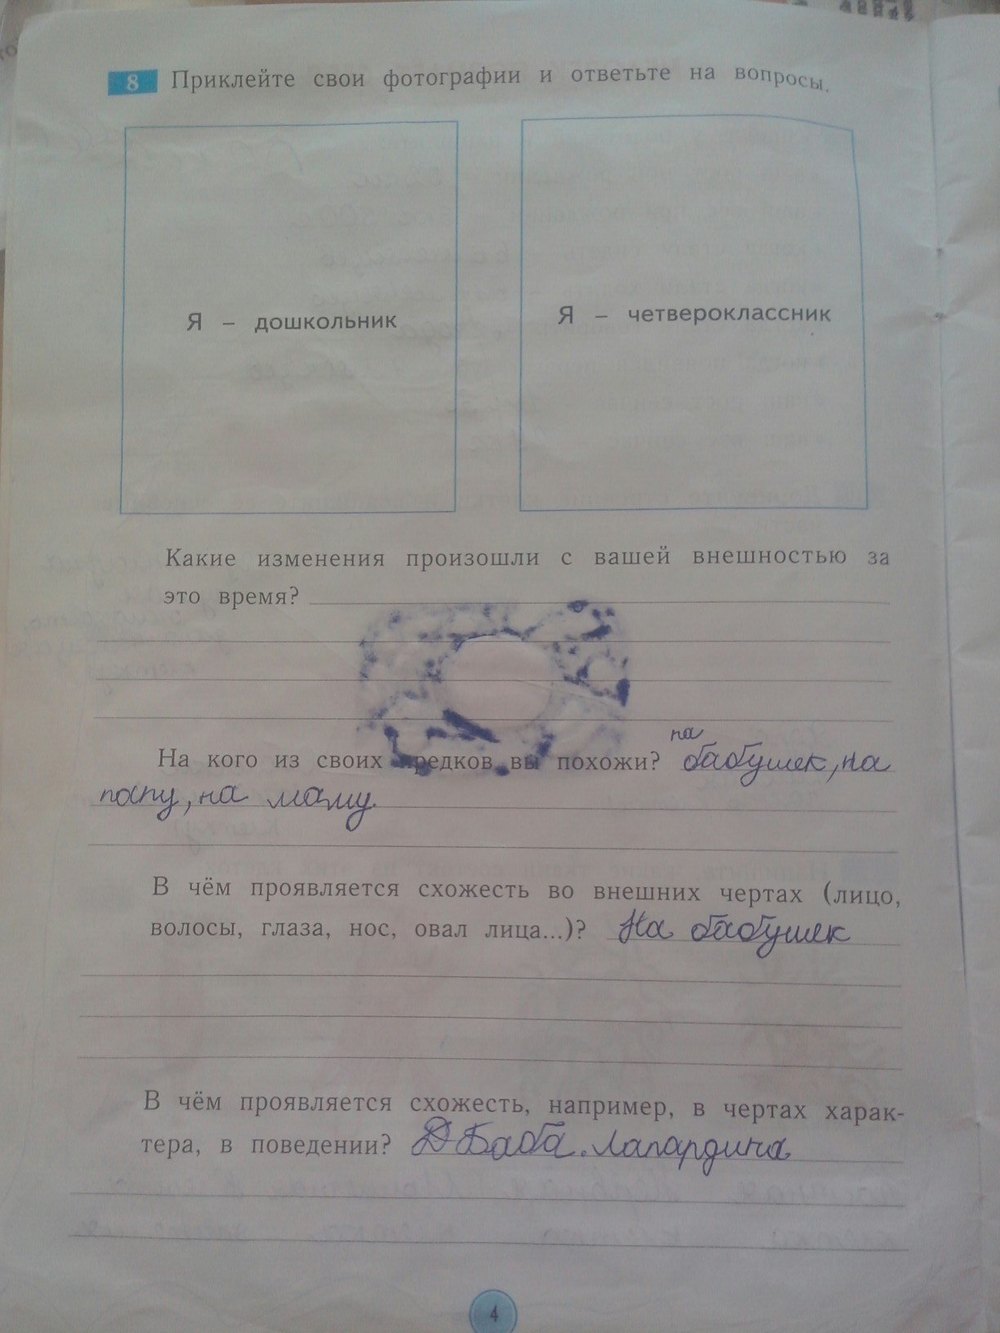 8 Приклейте свои фотографии и ответьте на вопросы.
Я – дошкольник
Я – четвероклассник
Какие изменения произошли с вашей внешностью за
это время?
На кого из своих предков вы похожи? на бабушек, на
папу, на маму.
В чём проявляется схожесть во внешних чертах (лицо,
волосы, глаза, нос, овал лица...)? На бабушек
В чём проявляется схожесть, например, в чертах харак-
тера, в поведении? Баба. Лапардина
4